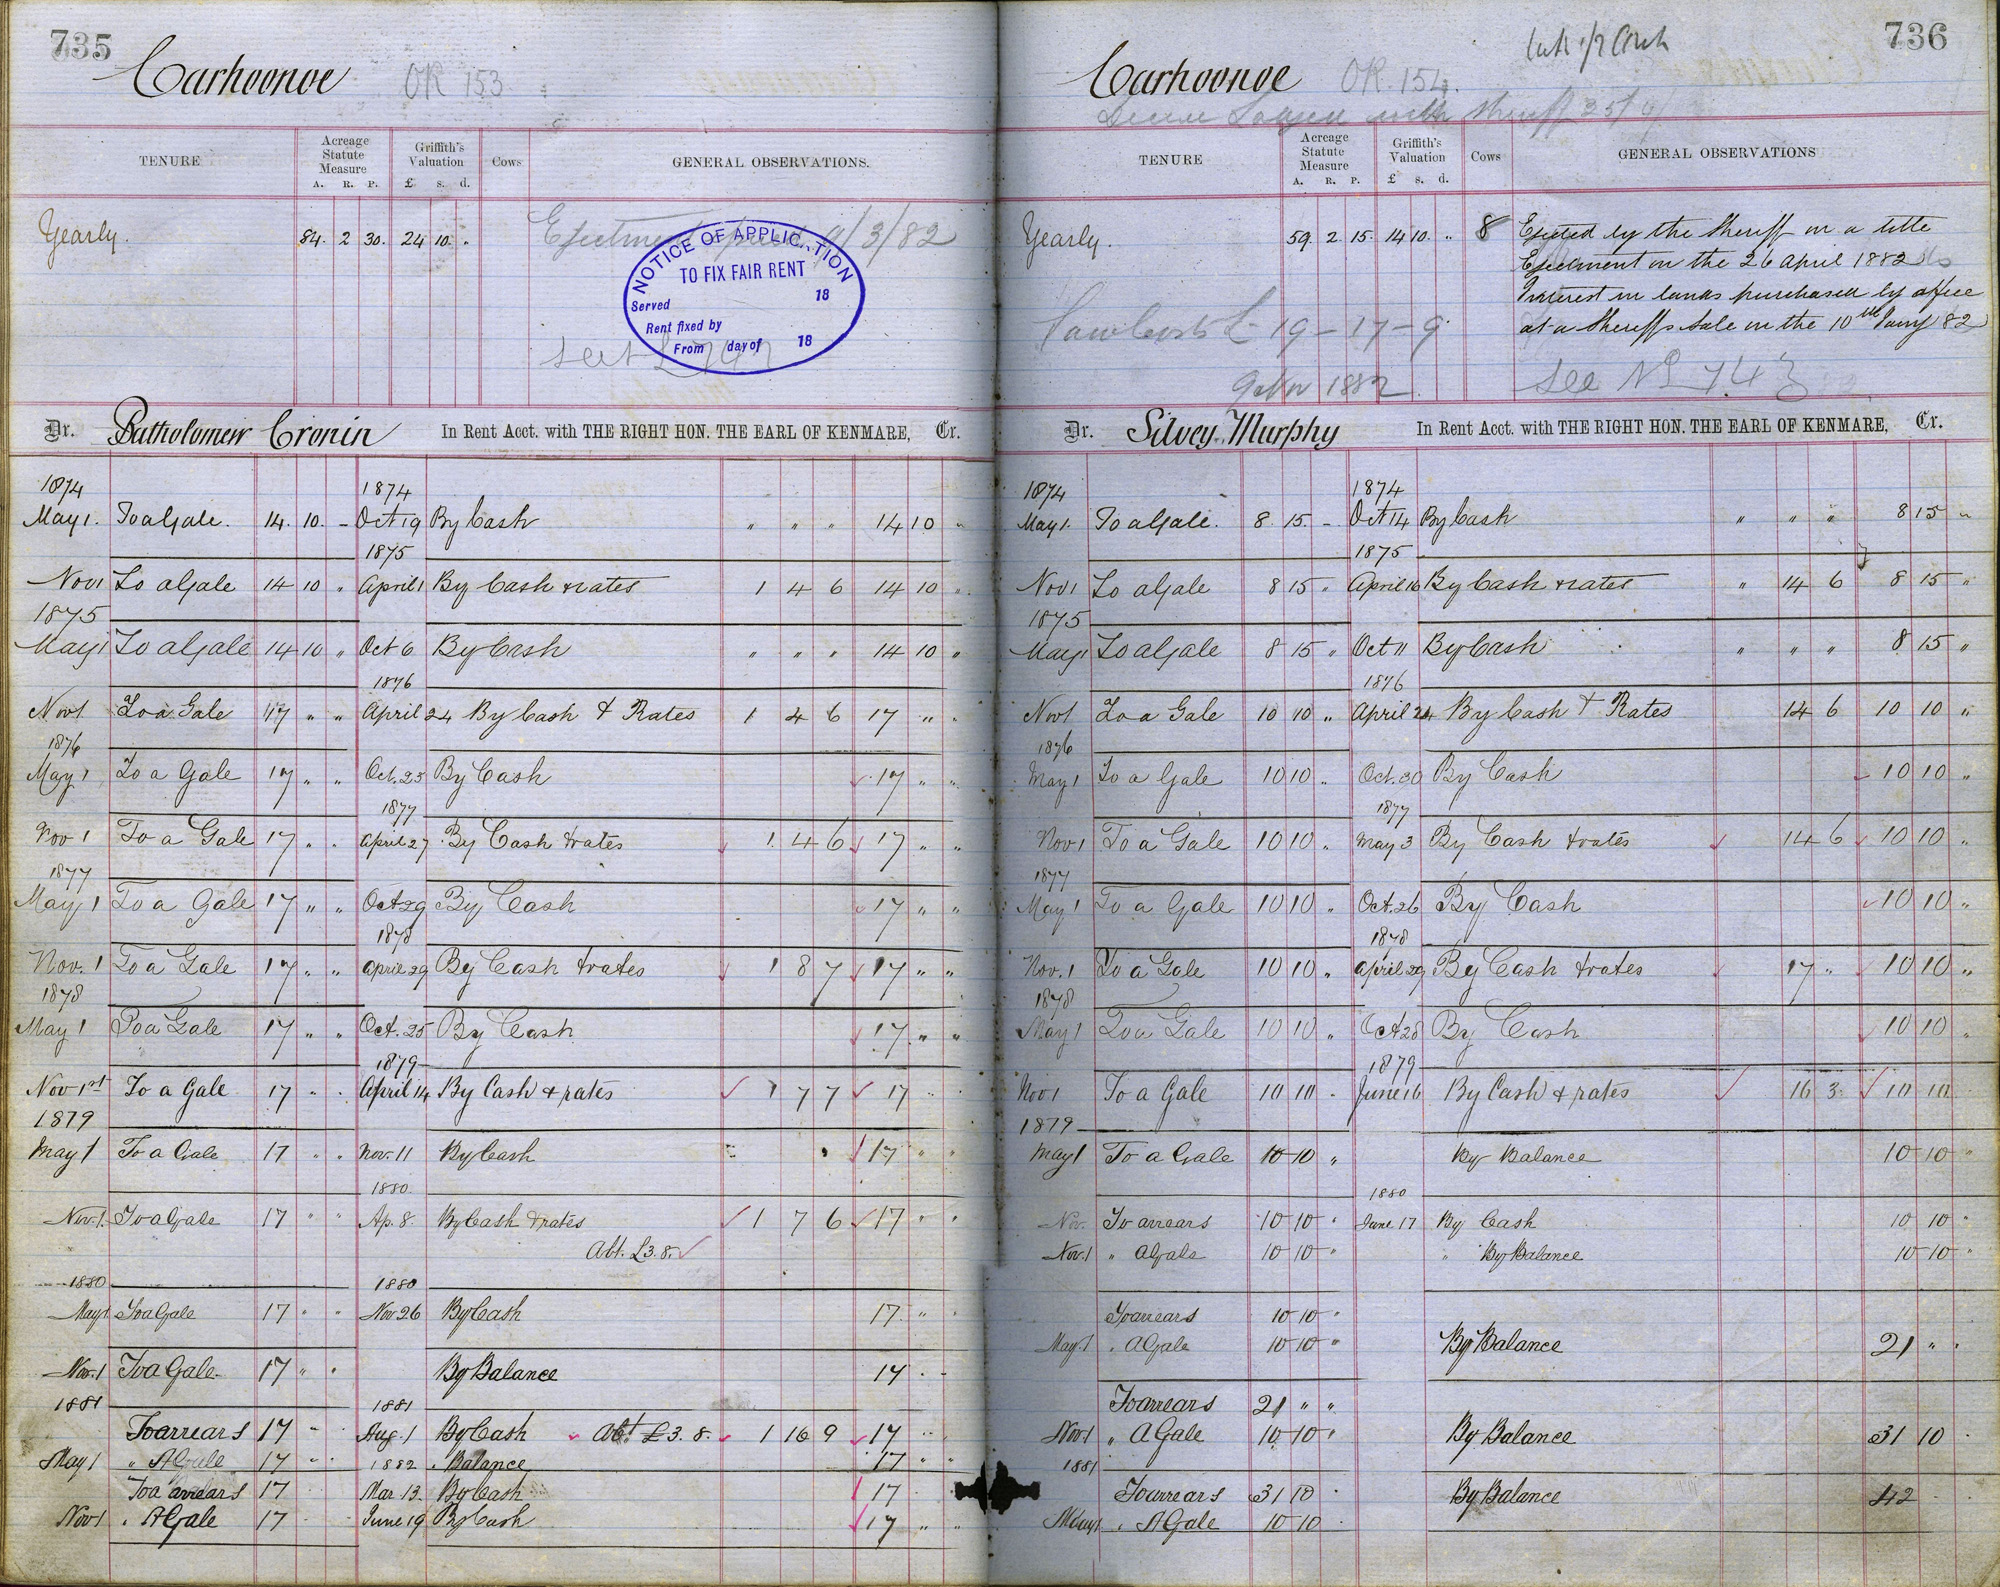 735
Carhoonoe OR 153
TENURE Acreage Statute Measure A. R. P. Griffith's Valuation £ s. d. Cows GENERAL OBSERVATIONS.
Yearly. 84. 2 30. 24 10. "
Ejectment 9/3/82
NOTICE OF APPLICATION
TO FIX FAIR RENT
Served 18
Rent fixed by
From day of 18
Dr. Batholomew Cronin In Rent Acct. with THE RIGHT HON. THE EARL OF KENMARE, Cr.
1874 1874
May 1. To a Gale. 14. 10. - Oct 19 By Cash " " " 14 10 "
1875
Nov 1 To a Gale 14 10 " April 1 By Cash & rates 1 4 6 14 10 "
1875
May 1 To a Gale 14 10 " Oct 6 By Cash " " " 14 10 "
1876
Nov 1 To a Gale 17 " " April 24 By Cash & Rates 1 4 6 17 " "
1876
May 1 To a Gale 17 " " Oct. 25 By Cash 17 " "
1877
Nov 1 To a Gale 17 " " April 27 By Cash & rates 1 4 6 17 " "
1877
May 1 To a Gale 17 " " Oct 29 By Cash 17 " "
1878
Nov. 1 To a Gale 17 " " April 29 By Cash & rates 1 8 7 17 " "
1878
May 1 To a Gale 17 " " Oct. 25 By Cash 17 " "
1879
Nov 1st To a Gale 17 " " April 14 By Cash & rates 1 7 7 17 " "
1879
May 1 To a Gale 17 " " Nov. 11 By Cash 17 " "
1880
Nov. 1. To a Gale 17 " " Ap. 8. By Cash & rates 1 7 6 17 " "
Abt. £3.8.
1880 1880
May 1 To a Gale 17 " " Nov 26 By Cash 17 " "
Nov. 1 To a Gale 17 " " By Balance 17 " "
1881 1881
To arrears 17 " Aug. 1 By Cash Abt £3. 8. 1 16 9 17 " "
May 1 " A Gale 17 " " 1882 " Balance 17 " "
To a arrears 17 Mar 13. By Cash 17
Nov 1 " A Gale 17 June 19 By Cash 17 " "
736
Carhoonoe OR. 154.
Decree Lodged with Sheriff 25/9/
TENURE Acreage Statute Measure A. R. P. Griffith's Valuation £ s. d. Cows GENERAL OBSERVATIONS
Yearly. 59. 2. 15. 14 10. " 8 Ejected by the Sheriff on a title
Ejectment on the 26 April 1882
Interest in lands purchased by office
at a Sheriffs Sale on the 10th Jany 82
£ 19-17-9
1882 See No 743
Dr. Silvey Murphy In Rent Acct. with THE RIGHT HON. THE EARL OF KENMARE, Cr.
1874 1874
May 1. To a Gale. 8. 15. - Oct 14 By Cash " " " 8 15 "
1875
Nov 1 To a Gale 8 15 " April 16 By Cash & rates " 14 6 8 15 "
1875
May 1 To a Gale 8 15 " Oct 11 By Cash " " " 8 15 "
1876
Nov 1 To a Gale 10 10 " April 24 By Cash & Rates 14 6 10 10 "
1876
May 1 To a Gale 10 10 " Oct. 30 By Cash 10 10 "
1877
Nov. 1 To a Gale 10 10 " May 3 By Cash & rates 14 6 10 10 "
1877
May 1 To a Gale 10 10 " Oct. 26 By Cash 10 10 "
1878
Nov. 1 To a Gale 10 10 " April 29 By Cash & rates 17 " 10 10 "
1878
May 1 To a Gale 10 10 " Oct 28 By Cash 10 10 "
1879
Nov 1 To a Gale 10 10 " June 16 By Cash & rates 16 3 10 10
1879
May 1 To a Gale 10 10 " By Balance 10 10 "
1880
Nov. To arrears 10 10 " June 17 By Cash 10 10 "
Nov. 1 " A Gale 10 10 " " By Balance 10 10 "
To arrears 10 10 "
May 1 " A Gale 10 10 " By Balance 21 " "
To arrears 21 " "
Nov 1 " A Gale 10 10 " By Balance 31 10
1881
To arrears 31 10 " By Balance 42
May 1 " A Gale 10 10